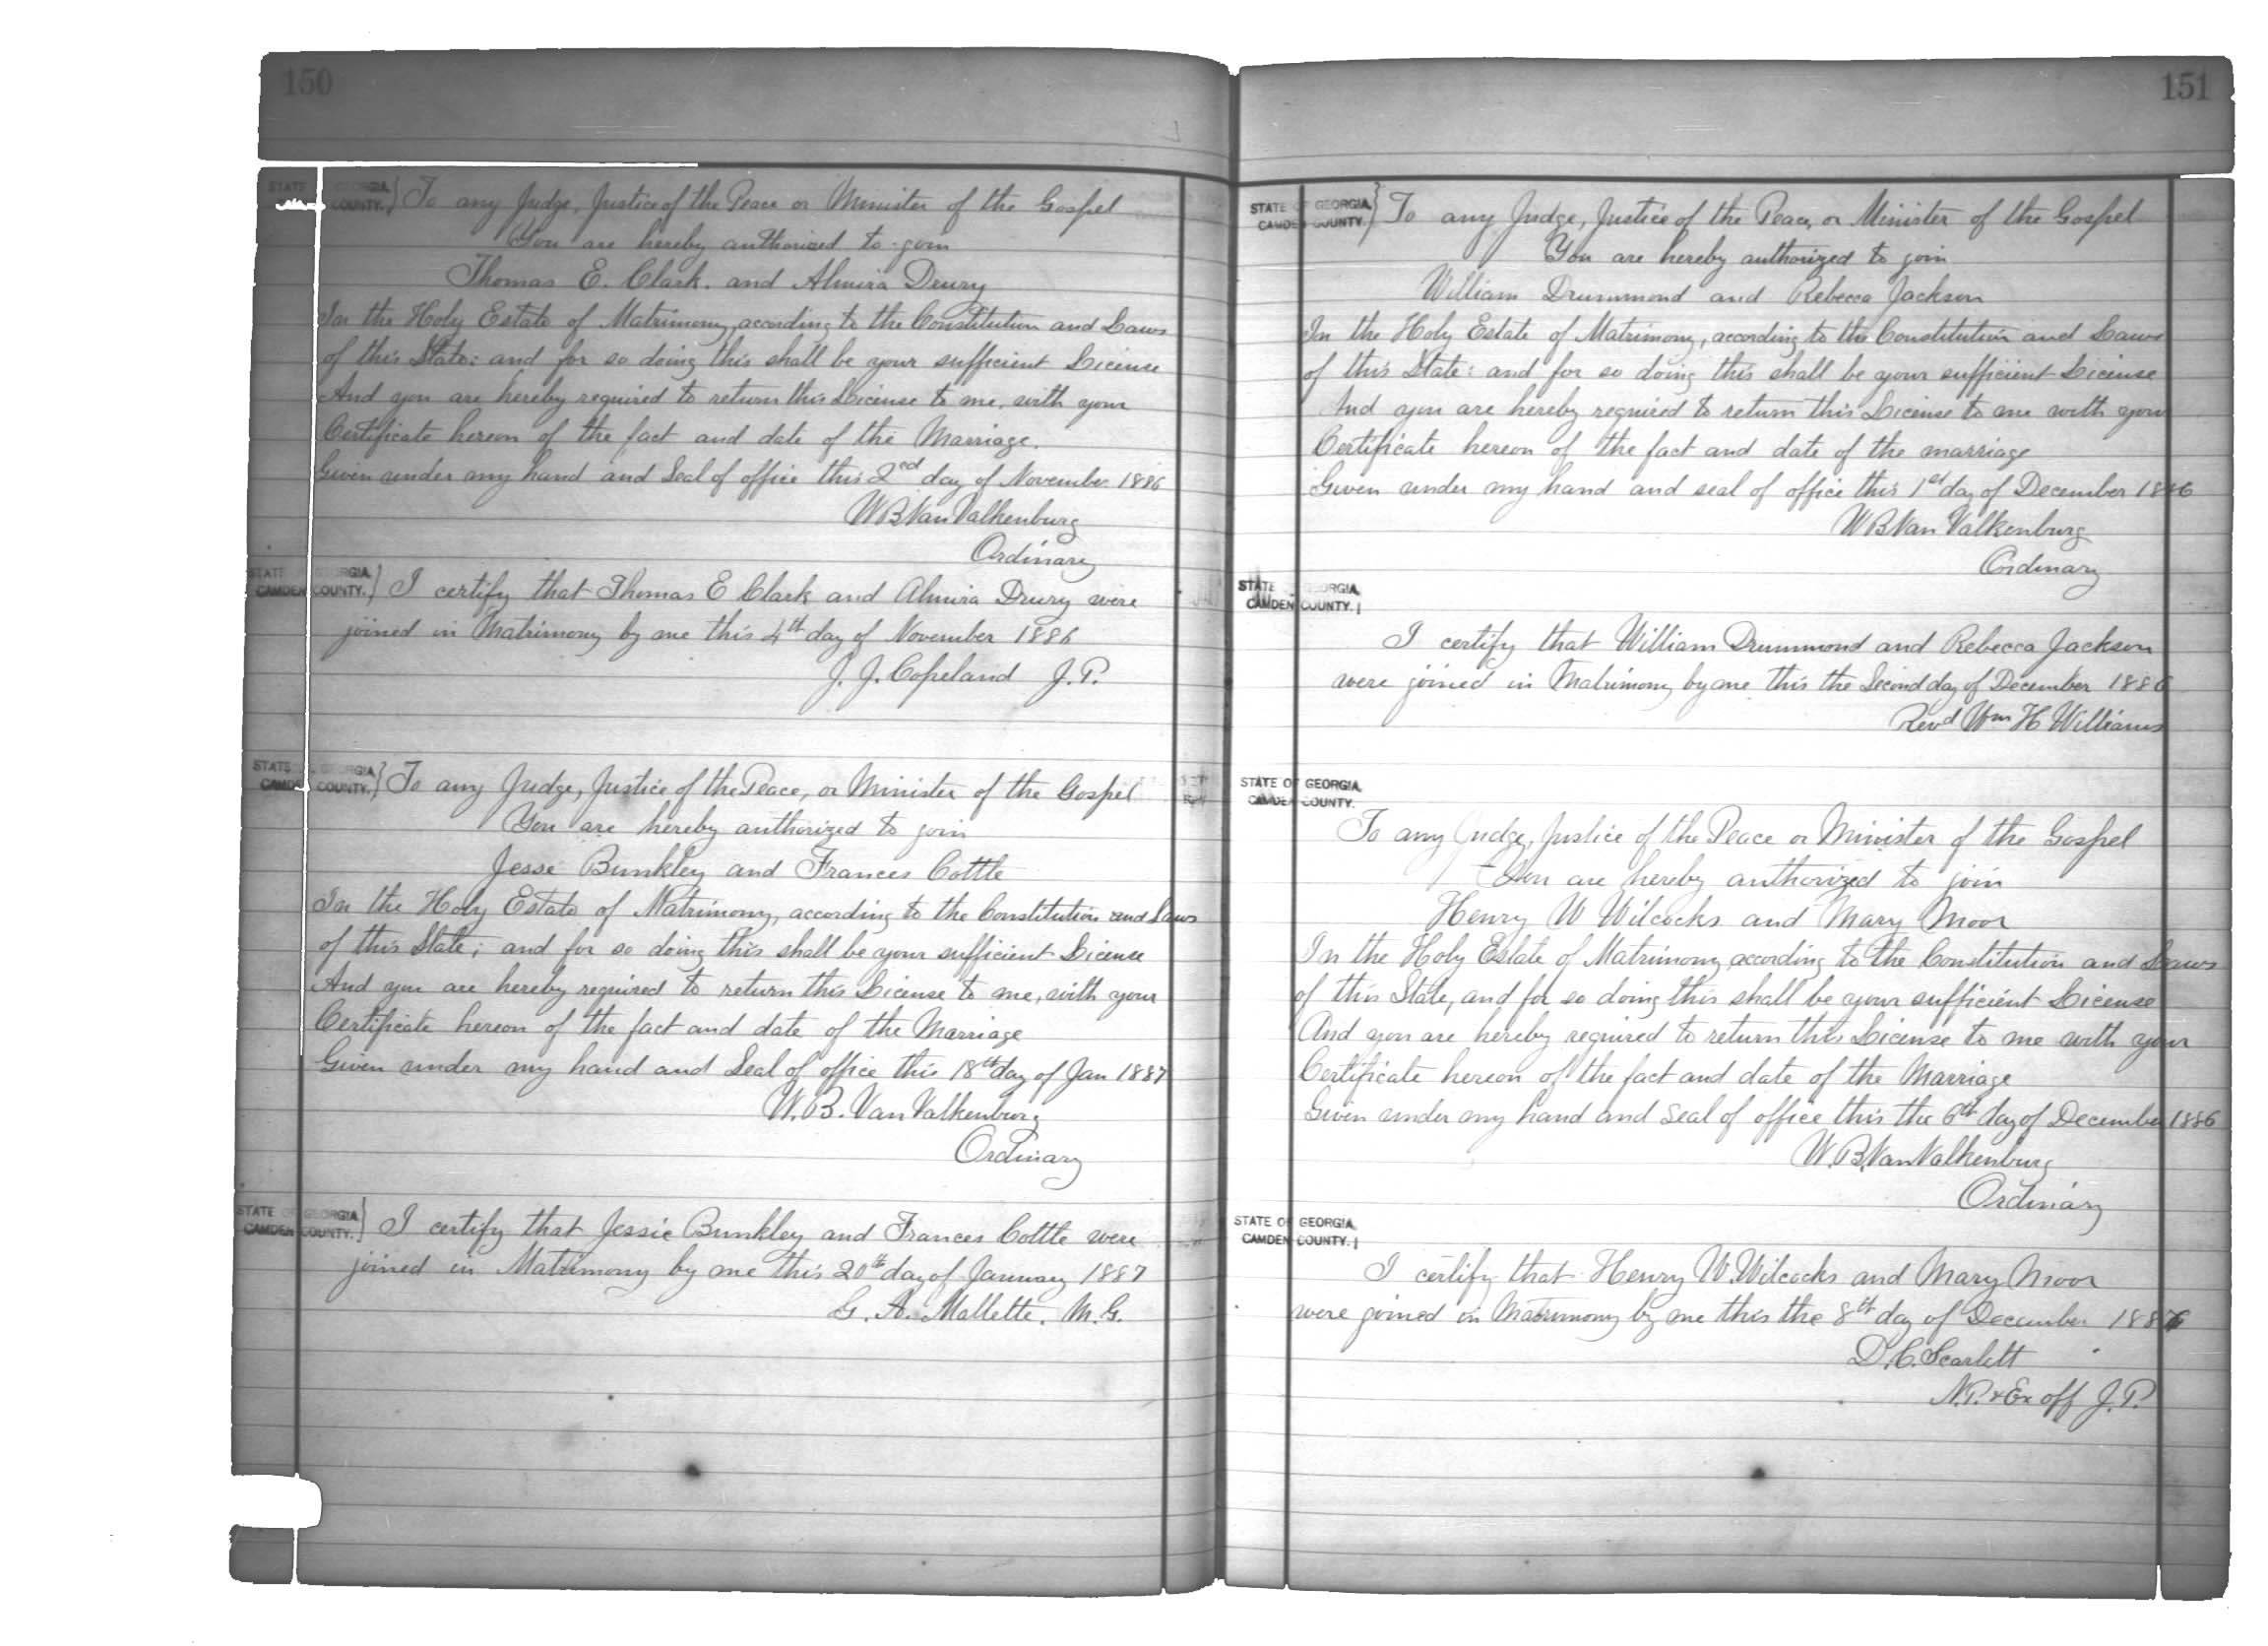 150
STATE GEORGIA, COUNTY. } To any Judge, Justice of the Peace or Minister of the Gospel
You are hereby authorized to join
Thomas E. Clark. and Almira Drury
In the Holy Estate of Matrimony, according to the Constitution and Laws
of this State: and for so doing this shall be your sufficient License
And you are hereby required to return this License to me, with your
Certificate hereon of the fact and date of the Marriage.
Given under my hand and Seal of office this 2nd day of November 1886
W B Van Valkenburg
Ordinary
STATE GEORGIA, CAMDEN COUNTY. } I certify that Thomas E Clark and Almira Drury were
joined in Matrimony by me this 4th day of November 1886
J. J. Copeland J.P.
STATE OF GEORGIA, CAMDEN COUNTY. } To any Judge, Justice of the Peace, or Minister of the Gospel
You are hereby authorized to join
Jesse Bunkley and Frances Cottle
In the Holy Estate of Matrimony, according to the Constitution and Laws
of this State; and for so doing this shall be your sufficient License
And you are hereby required to return this License to me, with your
Certificate hereon of the fact and date of the Marriage
Given under my hand and Seal of office this 18th day of Jan 1887
W. B. Van Valkenburg
Ordinary
STATE OF GEORGIA, CAMDEN COUNTY. } I certify that Jessie Bunkley and Frances Cottle were
joined in Matrimony by me this 20th day of January 1887
G. A. Mallette. M.G.
151
STATE OF GEORGIA, CAMDEN COUNTY. } To any Judge, Justice of the Peace, or Minister of the Gospel
You are hereby authorized to join
William Drummond and Rebecca Jackson
In the Holy Estate of Matrimony, according to the Constitution and Laws
of this State: and for so doing this shall be your sufficient License
And you are hereby required to return this License to me with your
Certificate hereon of the fact and date of the marriage
Given under my hand and seal of office this 1st day of December 1886
W B Van Valkenburg
Ordinary
STATE OF GEORGIA,
CAMDEN COUNTY.
I certify that William Drummond and Rebecca Jackson
were joined in Matrimony by me this the Second day of December 1886
Revd Wm H Williams
STATE OF GEORGIA,
CAMDEN COUNTY.
To any Judge, Justice of the Peace or Minister of the Gospel
You are hereby authorized to join
Henry W Wilcocks and Mary Moor
In the Holy Estate of Matrimony, according to the Constitution and Laws
of this State, and for so doing this shall be your sufficient License
And you are hereby required to return this License to me with your
Certificate hereon of the fact and date of the Marriage
Given under my hand and seal of office this the 6th day of December 1886
W. B. Van Valkenburg
Ordinary
STATE OF GEORGIA,
CAMDEN COUNTY.
I certify that Henry W. Wilcocks and Mary Moor
were joined in Matrimony by me this the 8th day of December 1886
D. C. Scarlett
N.P. & Ex off J.P.